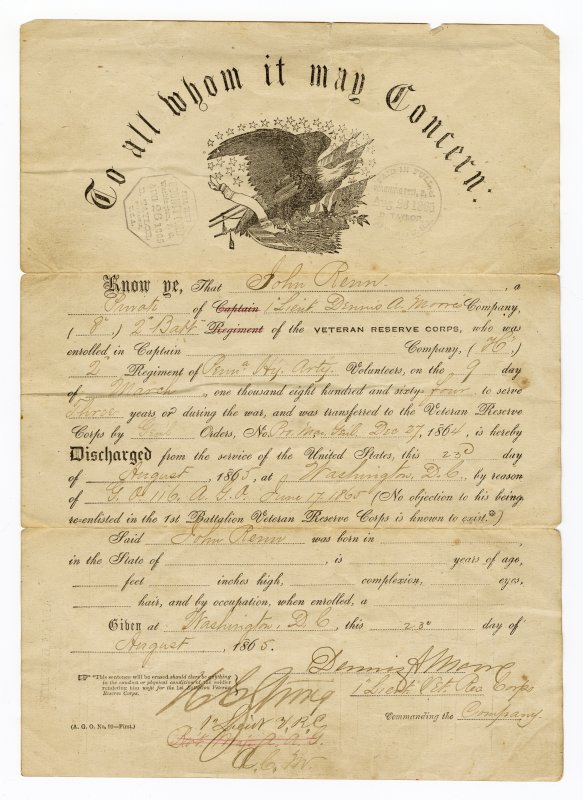 To all whom it may Concern:
PAID IN FULL
Know ye, That John Renn, a
Private of Captain 1 Lieut. Dennis A. Moore Company,
( 8" ) 2 Batt Regiment of the VETERAN RESERVE CORPS, who was
enrolled in Captain Company, ( H" )
2 Regiment of Penna Hy. Arty. Volunteers, on the 9 day
of March, one thousand eight hundred and sixty four, to serve
Three years or during the war, and was transferred to the Veteran Reserve
Corps by Genl Orders, No. Dec 27, 1864, is hereby
Discharged from the service of the United States, this 23d day
of August, 1865, at Washington, D.C., by reason
of G.O. 116, A.G.O. June 17 1865 (No objection to his being
re-enlisted in the 1st Battalion Veteran Reserve Corps is known to exist.*)
Said John Renn was born in
in the State of , is years of age,
feet inches high, complexion, eyes,
hair, and by occupation, when enrolled, a
Given at Washington, D.C., this 23d day of
August, 1865.
Dennis A Moore
1" Lieut. Vet. Res Corps
Commanding the Company.
*This sentence will be erased should there be anything
in the conduct or physical condition of the soldier
rendering him unfit for the 1st Battalion Veteran
Reserve Corps.
(A. G. O. No. 99—First.)
1" Lieut V.R.C.
A. C. M.